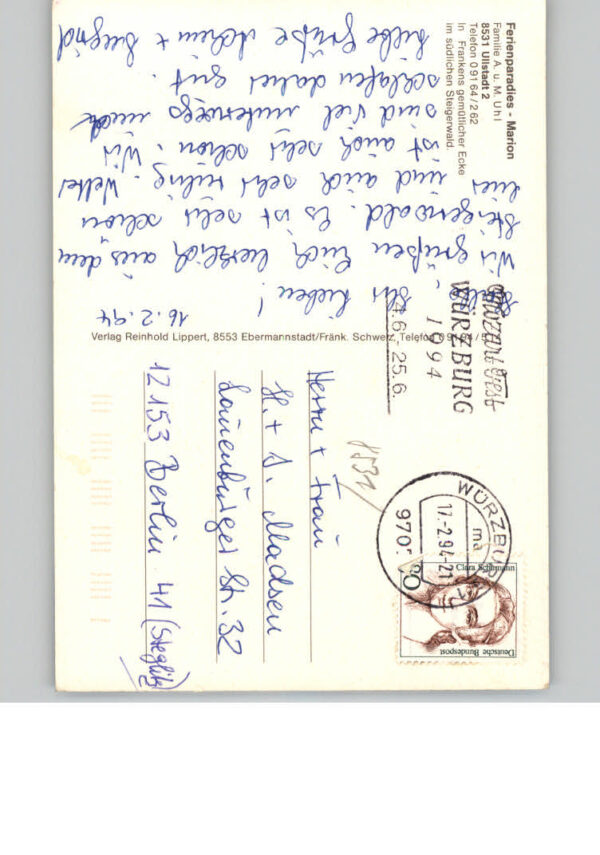 Ferienparadies - Marion
Familie A. u. M. Uhl
8531 Ullstadt 2
Telefon 0 91 64 / 2 62
In Frankens gemütlicher Ecke
im südlichen Steigerwald
16.2.94
Ihr Lieben!
Wir grüßen Euch herzlich aus dem
Steigerwald. Es ist sehr schön
hier und auch sehr ruhig. Wetter
ist auch sehr schön. Wir
sind viel unterwegs und
schlafen daher gut.
Liebe Grüße Achim + Siegrid
Verlag Reinhold Lippert, 8553 Ebermannstadt/Fränk. Schweiz, Telefon
Mozartfest
WÜRZBURG
1994
25.6.
WÜRZBURG
17.-2.94-21
ma
970
Clara Schumann
Deutsche Bundespost
8531
Herrn + Frau
H. + D. Madsen
Lauenburger Str. 32
12153 Berlin 41 (Steglitz)